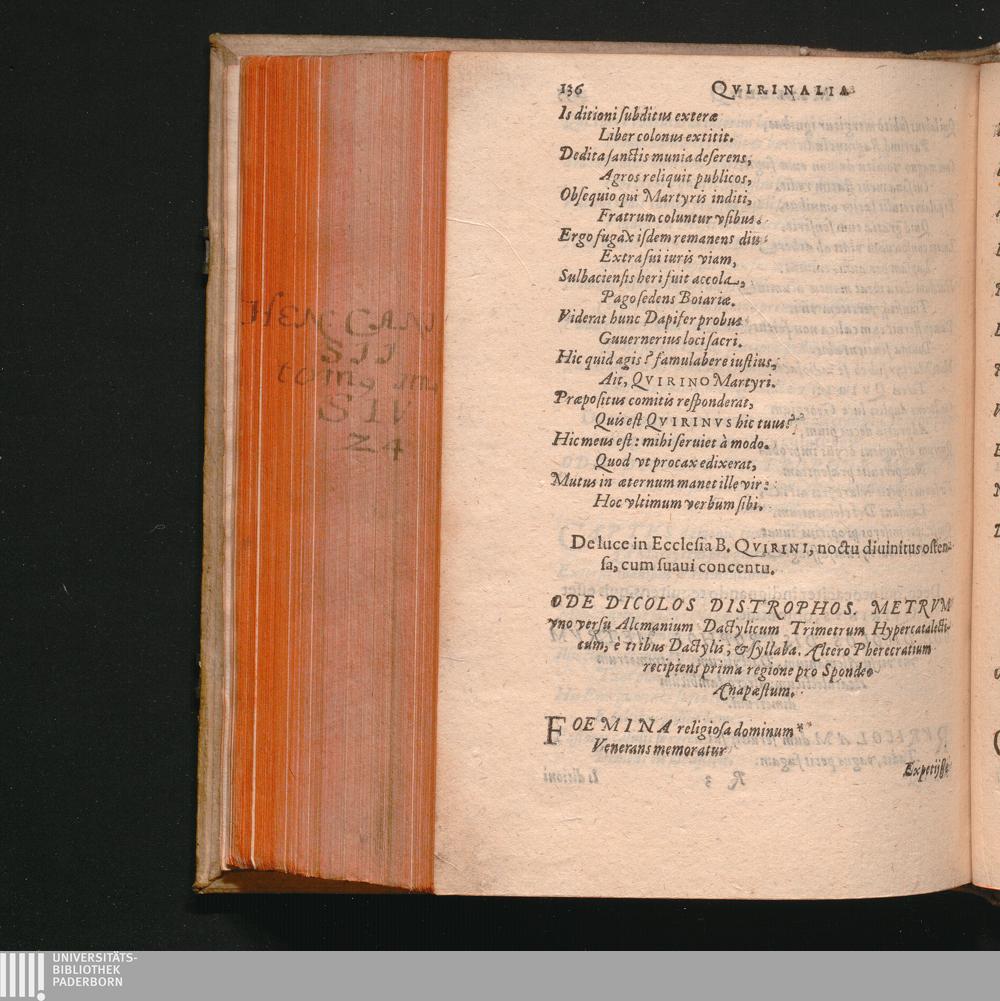 HEN: CANI
SII
tom, III,
S IV
24
136 QVIRINALIA
Is ditioni ſubditus exteræ
Liber colonus extitit.
Dedita ſanctis munia deſerens,
Agros reliquit publicos,
Obſequio qui Martyris inditi,
Fratrum coluntur vſibus.
Ergo fugax iſdem remanens diu
Extra ſui iuris viam,
Sulbacienſis heri fuit accola,
Pago ſedens Boiariæ.
Viderat hunc Dapifer probus
Guuernerius loci ſacri.
Hic quid agis? famulabere iuſtius,
Ait, QVIRINO Martyri.
Præpoſitus comitis reſponderat,
Quis eſt QVIRINVS hic tuus?
Hic meus eſt: mihi ſeruiet à modo.
Quod vt procax edixerat,
Mutus in æternum manet ille vir:
Hoc vltimum verbum ſibi.
De luce in Eccleſia B. QVIRINI, noctu diuinitus oſten-
ſa, cum ſuaui concentu.
ODE DICOLOS DISTROPHOS. METRVM
vno verſu Alcmanium Dactylicum Trimetrum Hypercatalecti-
cum, è tribus Dactylis, & ſyllaba. Altero Pherecratium
recipiens prima regione pro Spondeo
Anapæſtum.
FOEMINA religioſa dominum
Venerans memoratur
Expetijſſe
Is ditioni
R 3
UNIVERSITÄTS-
BIBLIOTHEK
PADERBORN